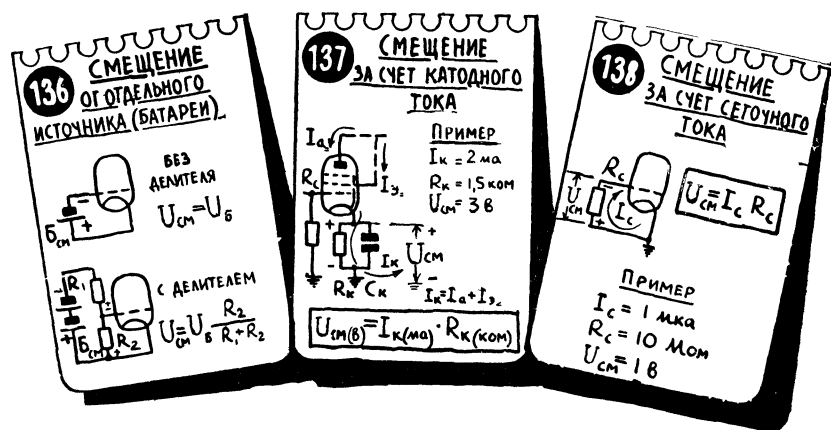 136 СМЕЩЕНИЕ
ОГ ОТДЕЛЬНОГО
ИСТОЧНИКА (БАТАРЕИ)
БЕЗ
ДЕЛИТЕЛЯ
Uсм = Uб
Бсм
+
С ДЕЛИТЕЛЕМ
R1
Uсм = Uб R2 / R1 + R2
Бсм
R2
+
137 СМЕЩЕНИЕ
ЗА СЧЕТ КАТОДНОГО
ТОКА
Iа
ПРИМЕР
Iк = 2 ма
Rс
Iэ2
Rк = 1,5 ком
Uсм = 3 в
+
+
Uсм
-
Iк
-
Rк
Cк
Iк = Iа + Iэ2
Uсм(в) = Iк(ма) · Rк(ком)
138 СМЕЩЕНИЕ
ЗА СЧЕТ СЕТОЧНОГО
ТОКА
Rс
Uсм
Iс
+
Uсм = Iс Rс
ПРИМЕР
Iс = 1 мка
Rс = 10 Мом
Uсм = 1 в